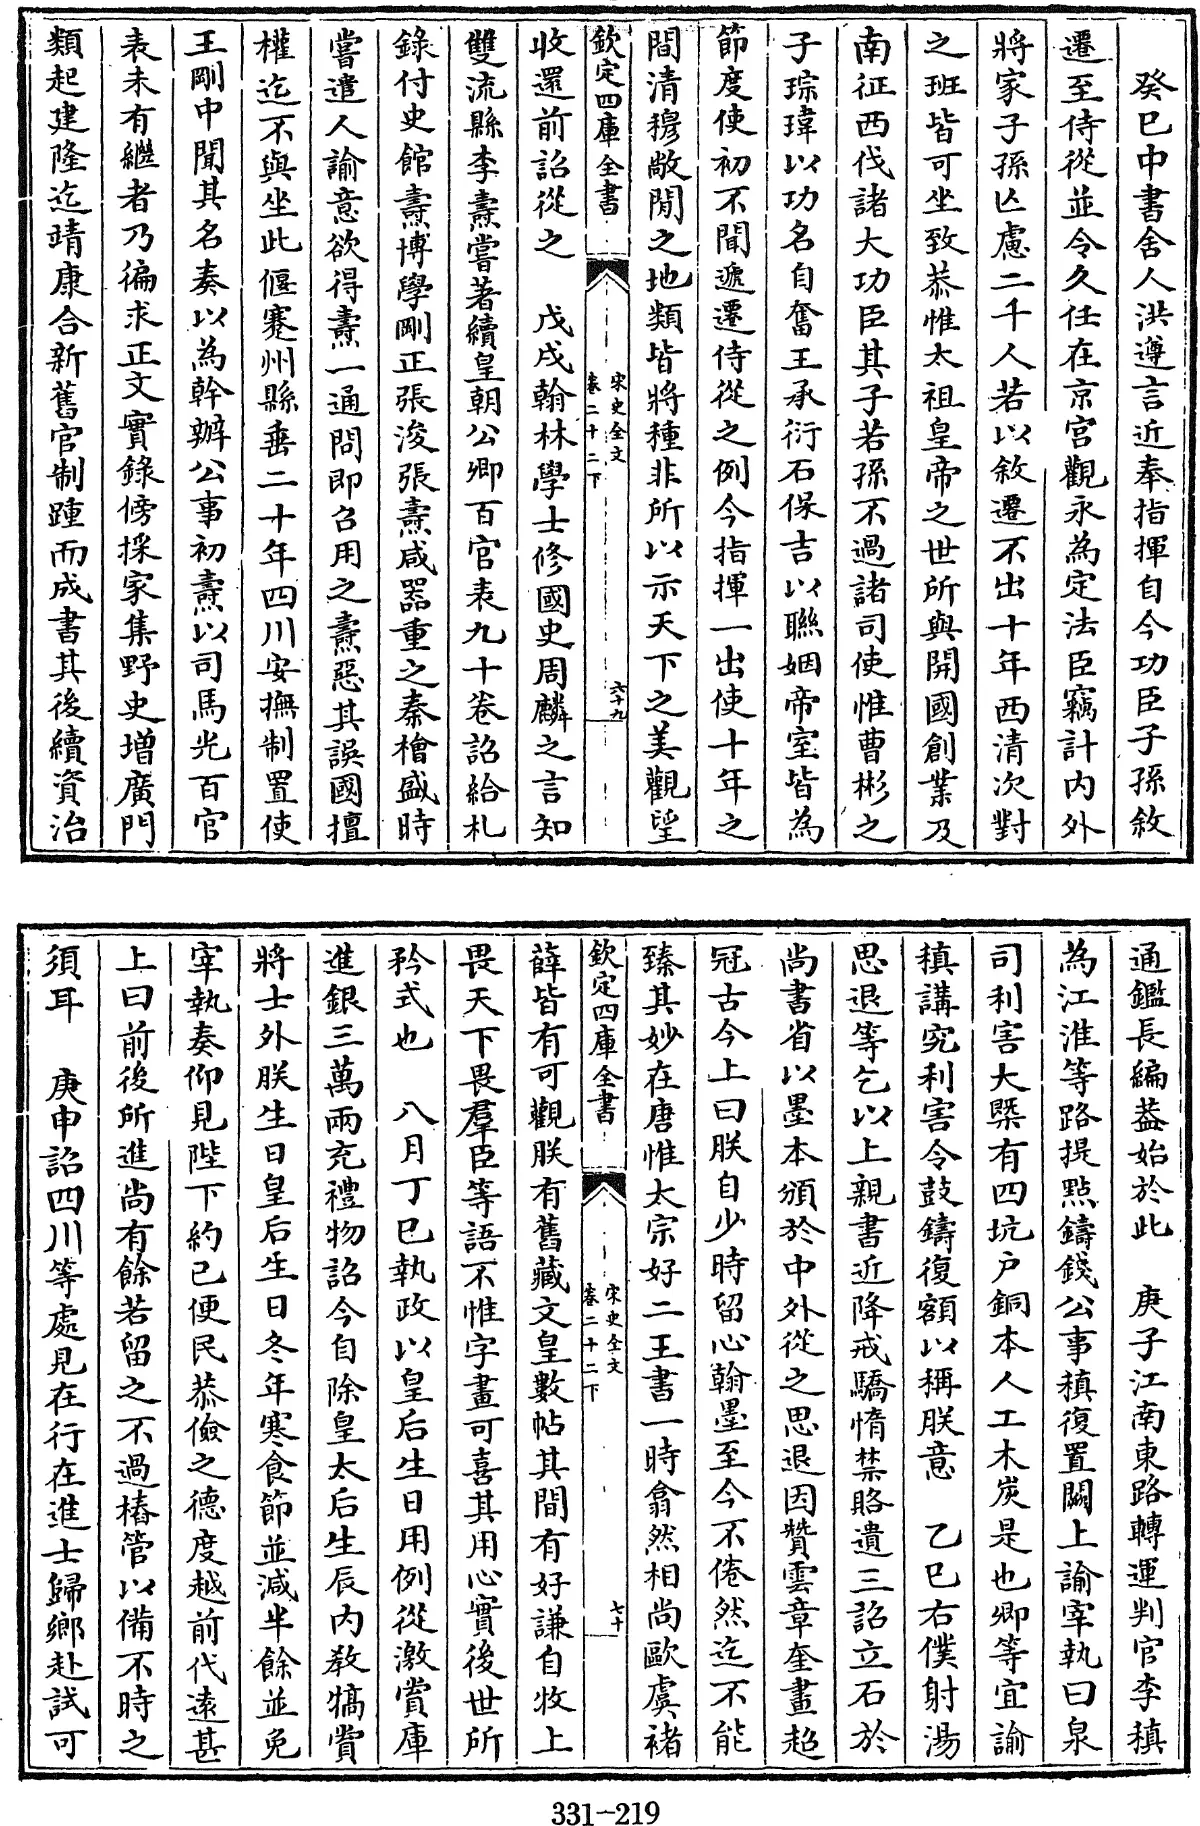 癸巳中書舍人洪遵言近奉指揮自今功臣子孫敘
遷至侍從並令久任在京宮觀永為定法臣竊計内外
將家子孫亾慮二千人若以敘遷不出十年西清次對
之班皆可坐致恭惟太祖皇帝之世所與開國創業及
南征西伐諸大功臣其子若孫不過諸司使惟曹彬之
子琮瑋以功名自奮王承衍石保吉以聯姻帝室皆為
節度使初不聞遞遷侍從之例今指揮一出使十年之
間清穆敞閒之地類皆將種非所以示天下之美觀望
欽定四庫全書
宋史全文
卷二十二下
六十九
收還前詔從之　戊戌翰林學士修國史周麟之言知
雙流縣李燾嘗著續皇朝公卿百官表九十卷詔給札
錄付史館燾博學剛正張浚張燾咸器重之秦檜盛時
嘗遣人諭意欲得燾一通問即召用之燾惡其誤國擅
權迄不與坐此偃蹇州縣垂二十年四川安撫制置使
王剛中聞其名奏以為幹辦公事初燾以司馬光百官
表未有繼者乃徧求正文實錄傍採家集野史增廣門
類起建隆迄靖康合新舊官制踵而成書其後續資治
通鑑長編葢始於此　庚子江南東路轉運判官李稹
為江淮等路提點鑄錢公事稹復置闗上諭宰執曰泉
司利害大槩有四坑戸銅本人工木炭是也卿等宜諭
稹講究利害令鼓鑄復額以稱朕意　乙巳右僕射湯
思退等乞以上親書近降戒驕惰禁賂遺三詔立石於
尚書省以墨本頒於中外從之思退因贊雲章奎畫超
冠古今上曰朕自少時留心翰墨至今不倦然迄不能
臻其妙在唐惟太宗好二王書一時翕然相尚歐虞褚
欽定四庫全書
宋史全文
卷二十二下
七十
薛皆有可觀朕有舊藏文皇數帖其間有好謙自牧上
畏天下畏羣臣等語不惟字畫可喜其用心實後世所
矜式也　八月丁巳執政以皇后生日用例從激賞庫
進銀三萬兩充禮物詔今自除皇太后生辰内教犒賞
將士外朕生日皇后生日冬年寒食節並減半餘並免
宰執奏仰見陛下約己便民恭儉之德度越前代遠甚
上曰前後所進尚有餘若留之不過樁管以備不時之
須耳　庚申詔四川等處見在行在進士歸鄉赴試可
331-219